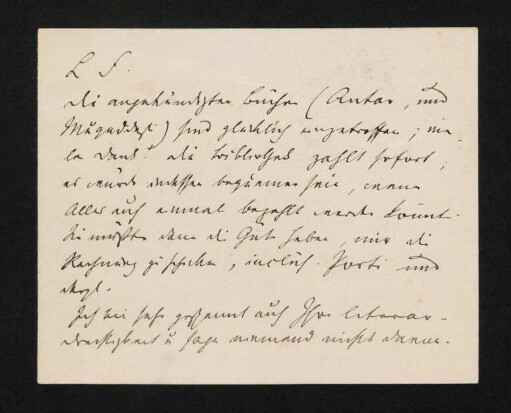 L F.
die angekündigten Bücher (Antar, und
Muqaddasi) sind glücklich eingetroffen; vie-
le Dank! die Bibliothek zahlt sofort;
es würde indessen bequemer sein, wenn
Alles auf einmal bezahlt werden könnt.
Sie müßten dann die Güte haben, mir die
Rechnung zu schicken, inclus. Porti und
dergl.
Ich bin sehr gespannt auf Ihre literar.
u sage niemand nichts davon.